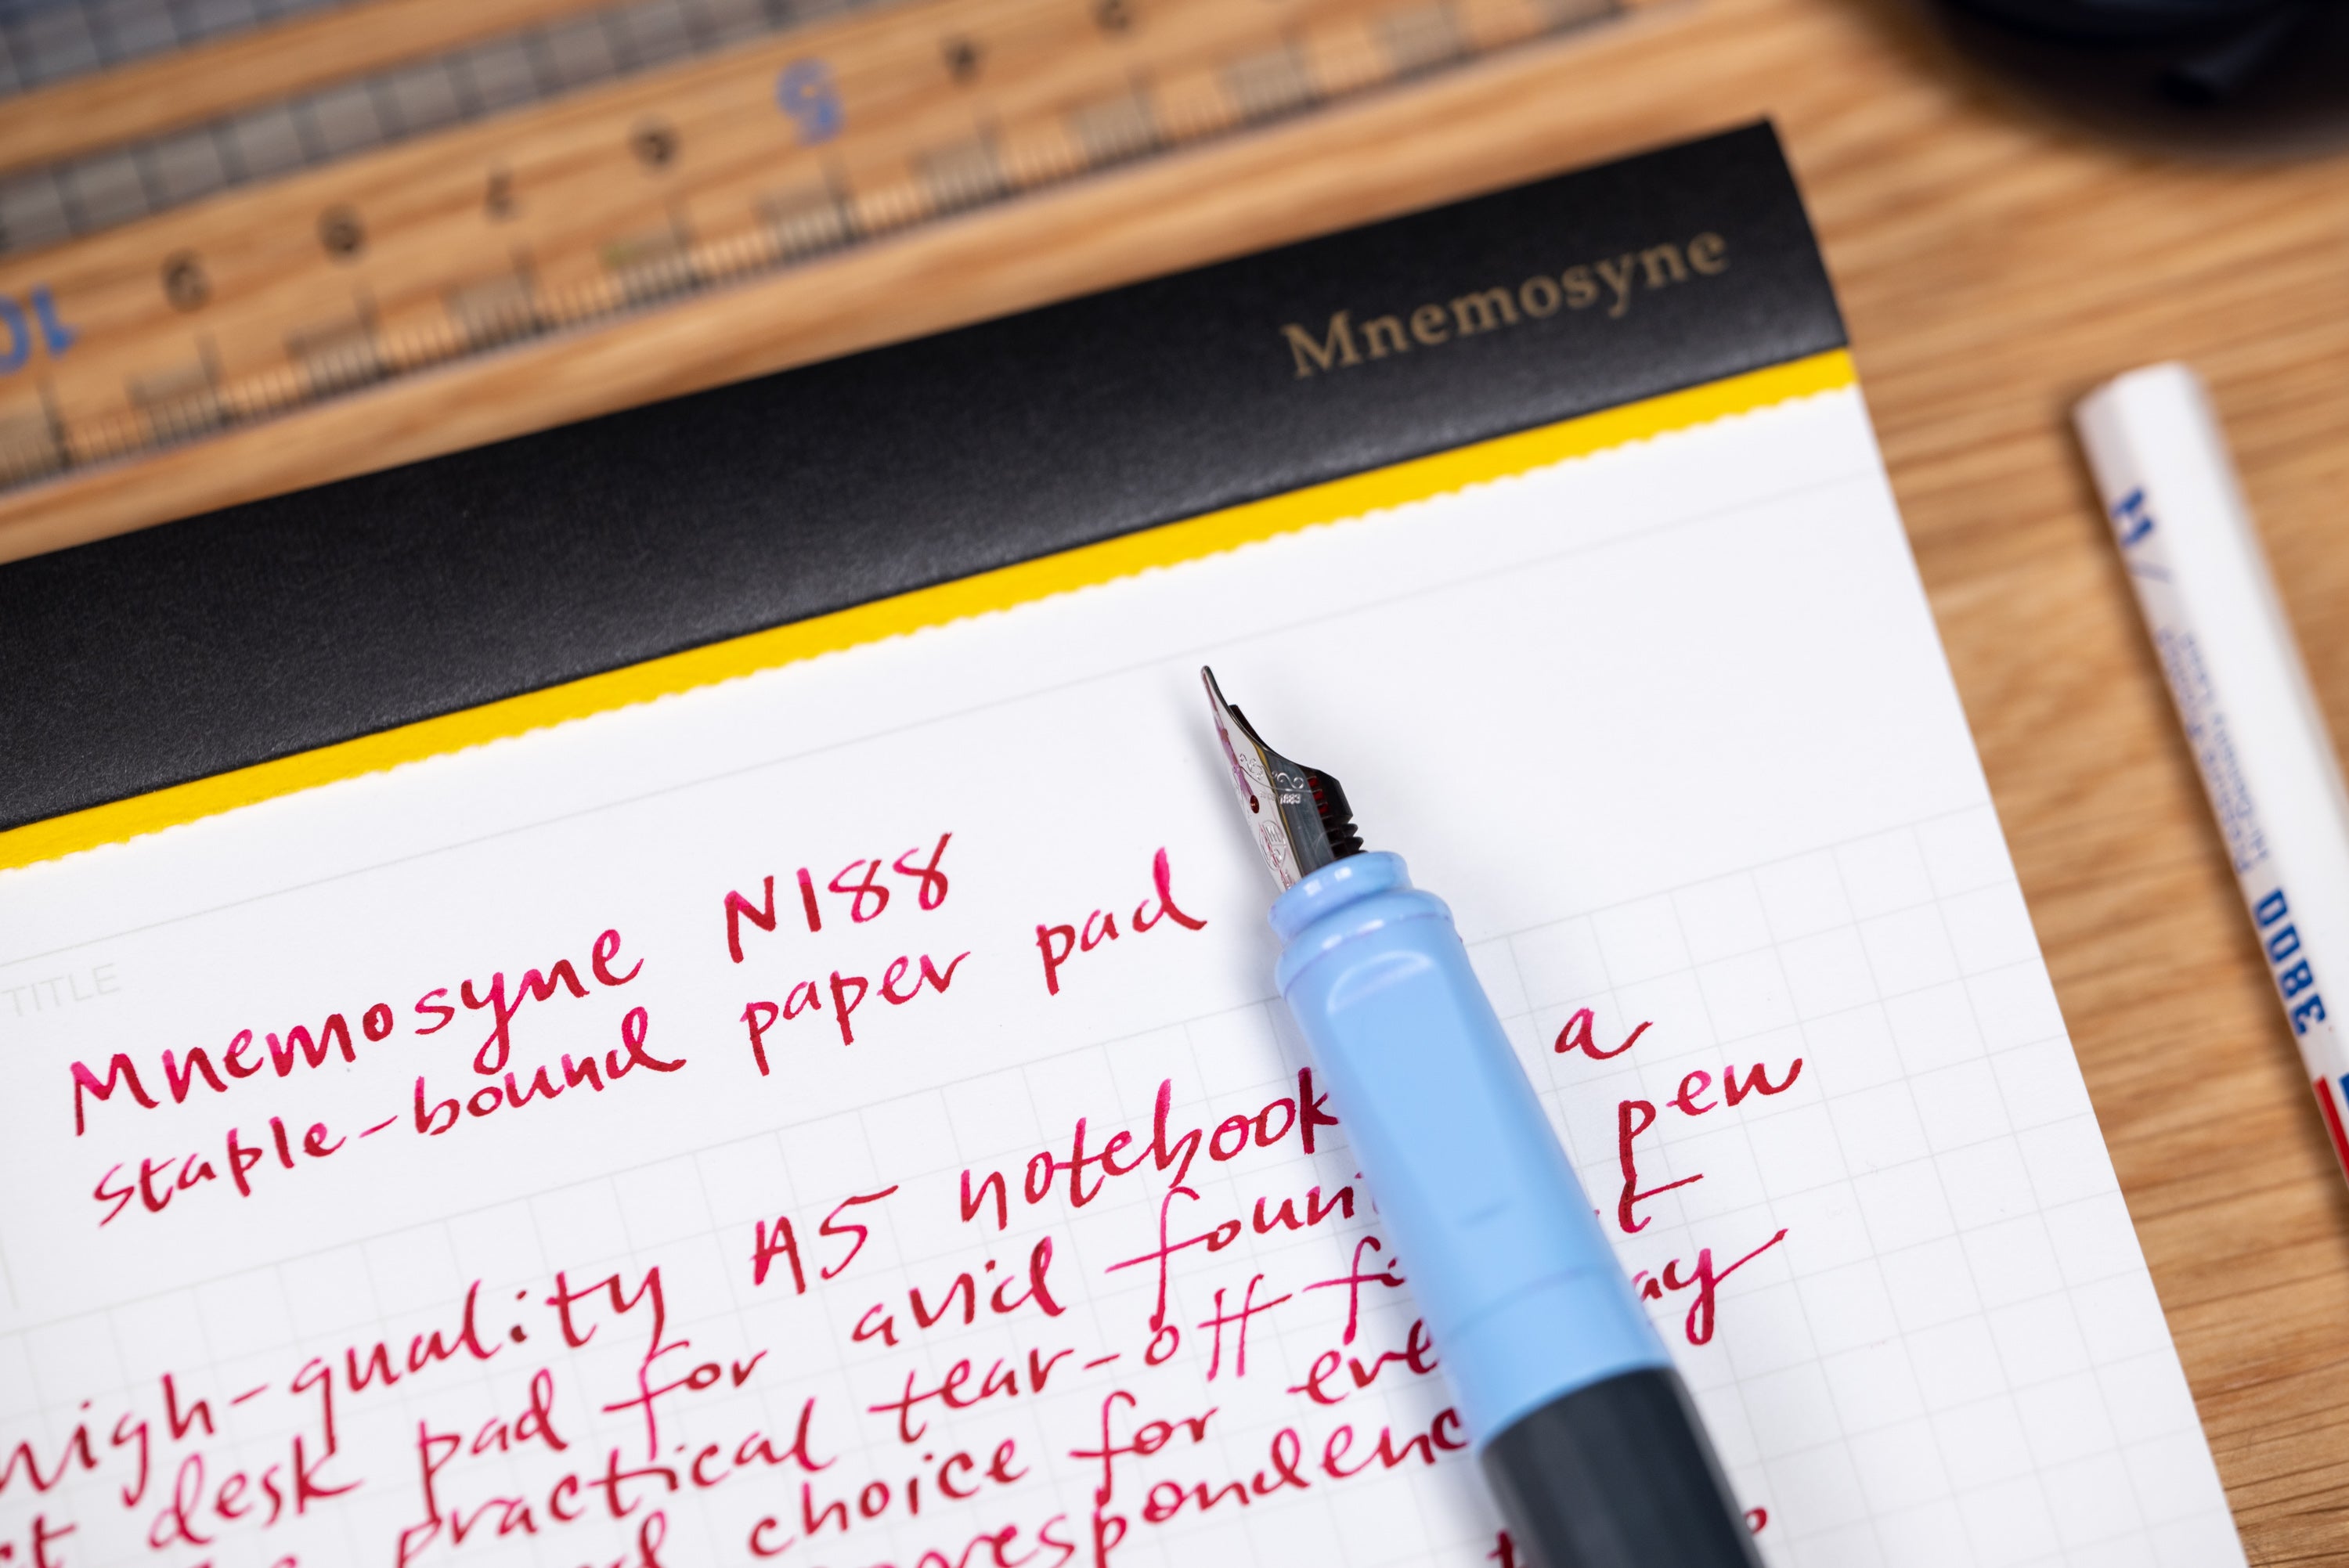 10 9 8 7 6 5 4
Mnemosyne
TITLE
Mnemosyne N188
staple-bound paper pad
high-quality A5 notebook a
desk pad for avid fount pen
practical tear-off fi t
choice for eve ay
respondenc
0086
1883